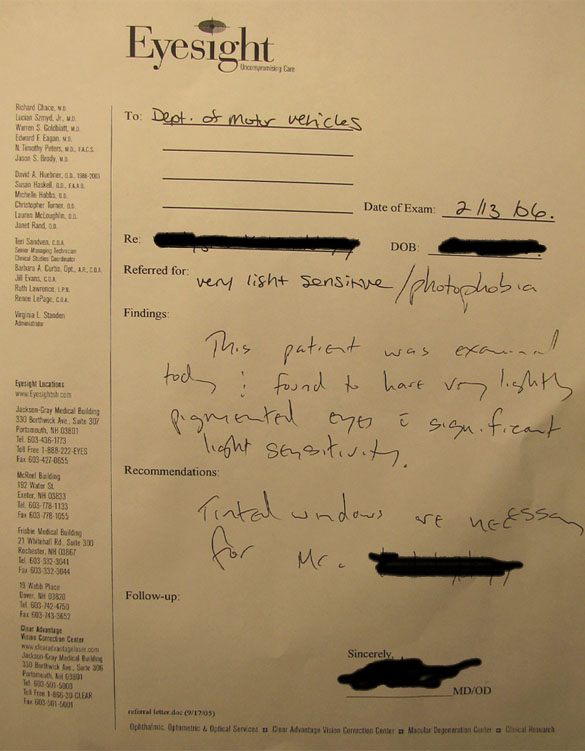 Eyesight
Uncompromising Care
Richard Chace, M.D.
Lucian Szmyd, Jr., M.D.
Warren S. Goldblatt, M.D.
Edward F. Eagan, M.D.
N. Timothy Peters, M.D., F.A.C.S.
Jason S. Brody, M.D.
David A. Huebner, O.D., 1986-2003
Susan Haskell, O.D., F.A.A.O.
Michelle Hobbs, O.D.
Christopher Turner, O.D.
Lauren McLoughlin, O.D.
Janet Rand, O.D.
Teri Sandven, C.O.A.
Senior Managing Technician
Clinical Studies Coordinator
Barbara A. Curtis, Opt., A.P., C.O.A.
Jill Evans, C.O.A.
Ruth Lawrence, L.P.N.
Renee LePage, C.O.A.
Virginia L. Standen
Administrator
Eyesight Locations
www.Eyesightnh.com
Jackson-Gray Medical Building
330 Borthwick Ave., Suite 307
Portsmouth, NH 03801
Tel. 603-436-1773
Toll Free 1-888-222-EYES
Fax 603-427-0655
McReel Building
192 Water St.
Exeter, NH 03833
Tel. 603-778-1133
Fax 603-778-1055
Frisbie Medical Building
21 Whitehall Rd., Suite 300
Rochester, NH 03867
Tel. 603-332-3041
Fax 603-332-3044
19 Webb Place
Dover, NH 03820
Tel. 603-742-4750
Fax 603-743-3652
Clear Advantage
Vision Correction Center
www.clearadvantagelaser.com
Jackson-Gray Medical Building
330 Borthwick Ave., Suite 306
Portsmouth, NH 03801
Tel. 603-501-5000
Toll Free 1-866-20-CLEAR
Fax 603-501-5001
To: Dept. of motor vehicles
Date of Exam: 2/13/06.
Re:
DOB:
Referred for: very light sensitive/photophobia
Findings:
This patient was examined
today : found to have very lightly
pigmented eyes c̄ significant
light sensitivity.
Recommendations:
Tinted windows are necessary
for Mr.
Follow-up:
Sincerely,
MD/OD
referral letter.doc (9/17/05)
Ophthalmic, Optometric & Optical Services ◘ Clear Advantage Vision Correction Center ◘ Macular Degeneration Center ◘ Clinical Research